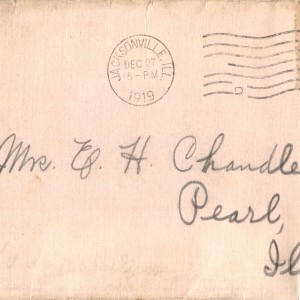 JACKSONVILLE, ILL.
DEC 27
5-PM
1919
D
Mrs. E. H. Chandle
Pearl,
Il